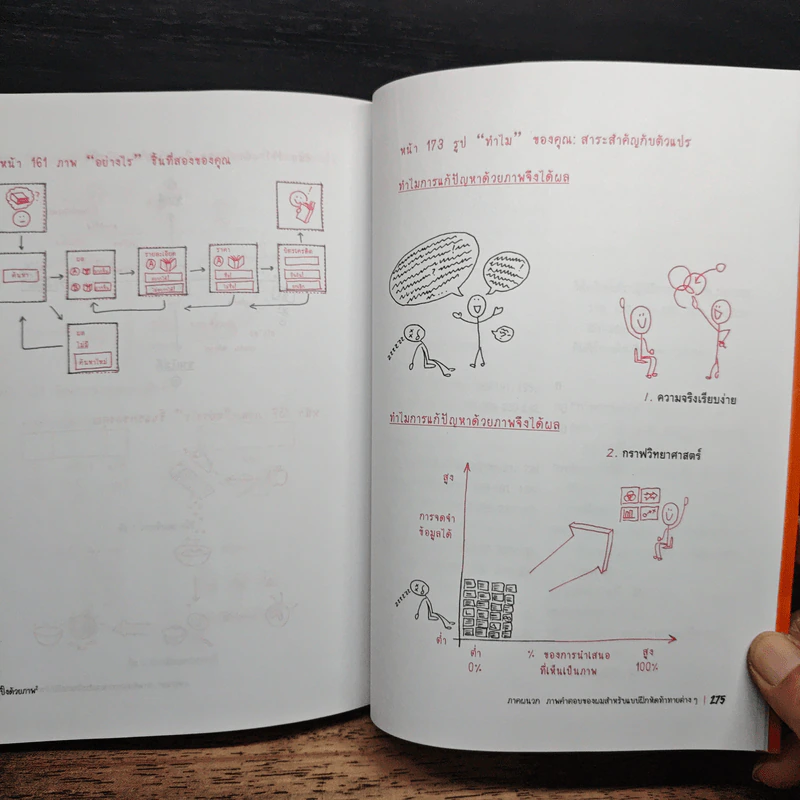 หน้า 161 ภาพ “อย่างไร” ชิ้นที่สองของคุณ
ค้นหา
ผล
รายละเอียด
ราคา
บัตรเครดิต
ผล
ไม่มี
ค้นหาใหม่
ปิ้งด้วยภาพ²
หน้า 173 รูป “ทำไม” ของคุณ: สาระสำคัญกับตัวแปร
ทำไมการแก้ปัญหาด้วยภาพจึงได้ผล
zzzzzz
1. ความจริงเรียบง่าย
ทำไมการแก้ปัญหาด้วยภาพจึงได้ผล
2. กราฟวิทยาศาสตร์
สูง
การจดจำ
ข้อมูลได้
zzzzzz
ต่ำ
ต่ำ
0%
% ของการนำเสนอ
ที่เห็นเป็นภาพ
สูง
100%
ภาคผนวก ภาพคำตอบของผมสำหรับแบบฝึกหัดท้าทายต่าง ๆ | 275